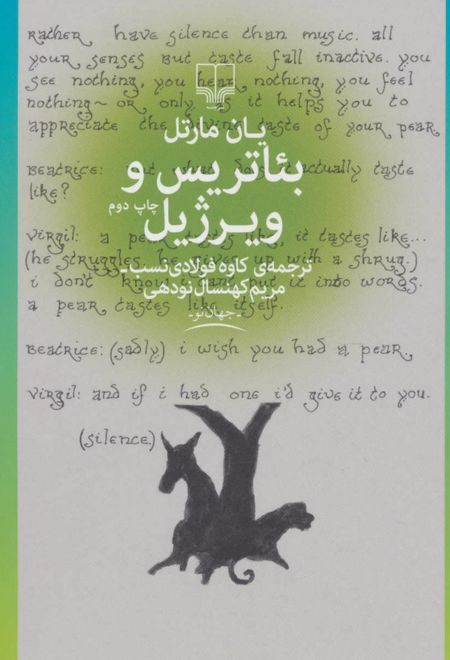 Rather have silence than music. all
your senses but taste fall inactive. you
see nothing, you hear nothing, you feel
nothing~ or only it helps you to
appreciate the taste of your pear
یان مارتل
Beatrice: actually taste
like?
بئاتریس و
ویرژیل
چاپ دوم
Virgil: a pear tastes like, it tastes like...
(he struggles. he gives up with a shrug.)
i don't know. put it into words.
a pear tastes like itself.
ترجمه‌ی کاوه فولادی‌نسب -
مریم کهنسال نودهی
- جهان نو -
Beatrice: (sadly) i wish you had a pear.
Virgil: and if i had one i'd give it to you.
(silence.)